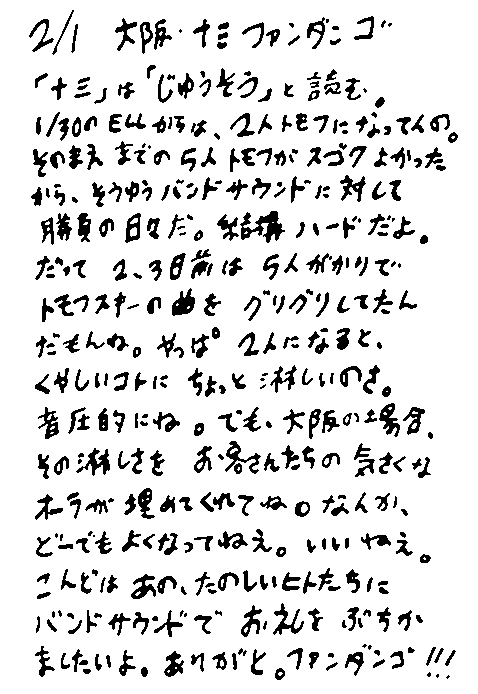 2/1 大阪・十三ファンダンゴ
「十三」は「じゅうそう」と読む。
1/30のELLからは、2人トモフになってんの。
そのまえまでの5人トモフがスゴクよかった
から、そうゆうバンドサウンドに対して
勝負の日々だ。結構ハードだよ。
だって2、3日前は5人がかりで
トモフスキーの曲をグリグリしてたん
だもんね。やっぱ2人になると、
くやしいコトにちょっと淋しいのさ。
音圧的にね。でも、大阪の場合、
その淋しさをお客さんたちの気さくな
オーラが埋めてくれてね。なんか、
どーでもよくなってねえ。いいねえ。
こんどはあの、たのしいヒトたちに
バンドサウンドでお礼をぶちか
ましたいよ。ありがと。ファンダンゴ!!!